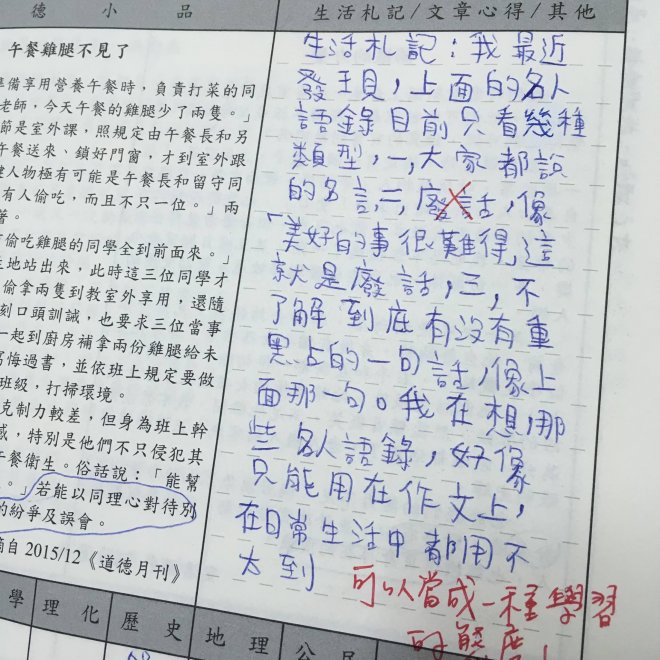 德 小 品
生活札記/文章心得/其他
午餐雞腿不見了
備享用營養午餐時，負責打菜的同
老師，今天午餐的雞腿少了兩隻。」
節是室外課，照規定由午餐長和另
午餐送來、鎖好門窗，才到室外跟
人物極有可能是午餐長和留守同
有人偷吃，而且不只一位。」兩
著。
偷吃雞腿的同學全到前面來。」
地站出來，此時這三位同學才
偷拿兩隻到教室外享用，還隨
刻口頭訓誡，也要求三位當事
一起到廚房補拿兩份雞腿給未
悔過書，並依班上規定要做
班級，打掃環境。
克制力較差，但身為班上幹
感，特別是他們不只侵犯其
午餐衛生。俗話說：「能幫
。」若能以同理心對待別
的紛爭及誤會。
自 2015/12《道德月刊》
生活札記：我最近
發現，上面的名人
語錄目前只看幾種
類型，一，大家都說
的名言，二，廢話，像
「美好的事很難得，這
就是廢話，三，不
了解到底有沒有重
點的一句話，像上
面那一句。我在想，那
些名人語錄，好像
只能用在作文上，
在日常生活中都用不
太到
可以當成一種學習
學 理 化 歷 史 地 理 公 民